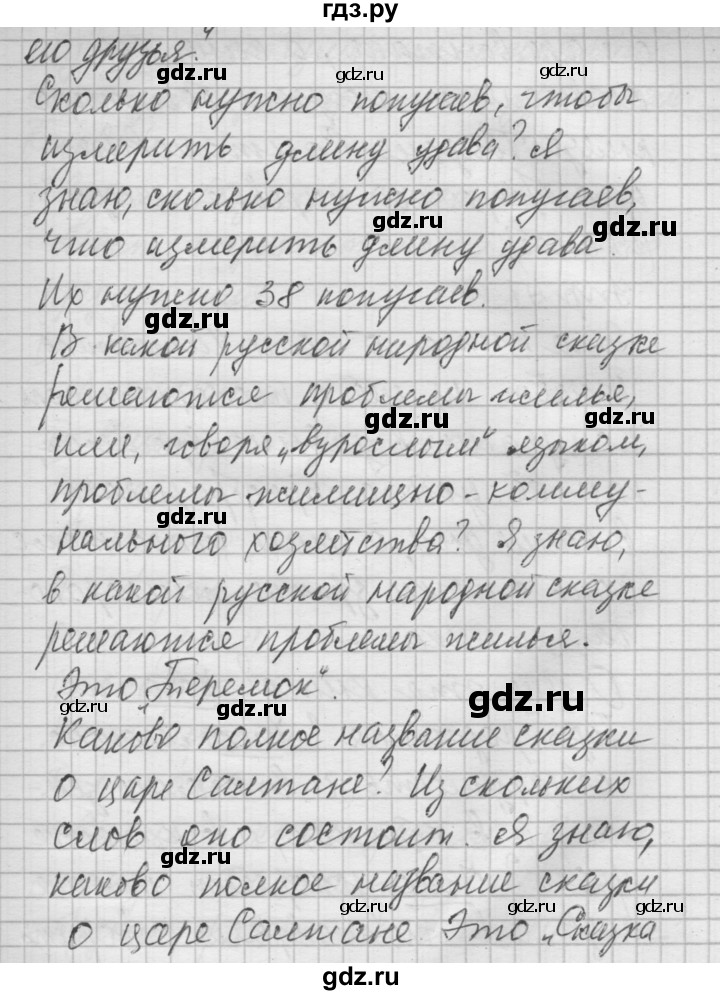 гдз.ру
его друзья."
Сколько нужно попугаев, чтобы
измерить длину удава? Я
знаю, сколько нужно попугаев,
что измерить длину удава.
Их нужно 38 попугаев.
В какой русской народной сказке
решаются проблемы жилья,
или, говоря „взрослым" языком,
проблемы жилищно-комму-
нального хозяйства? Я знаю,
в какой русской народной сказке
решаются проблемы жилья.
Это „Теремок".
Каково полное название сказки
о царе Салтане? Из скольких
слов оно состоит. Я знаю,
каково полное название сказки
о царе Салтане. Это „Сказка
gdz.ru